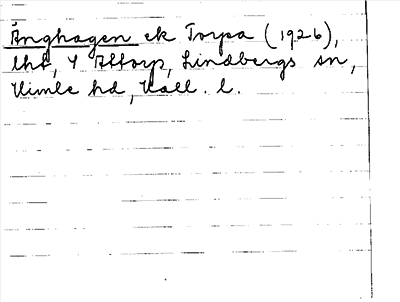 Änghagen ek Torpa (1926),
lht, Y Attorp, Lindbergs sn,
Himle hd, Hall. l.